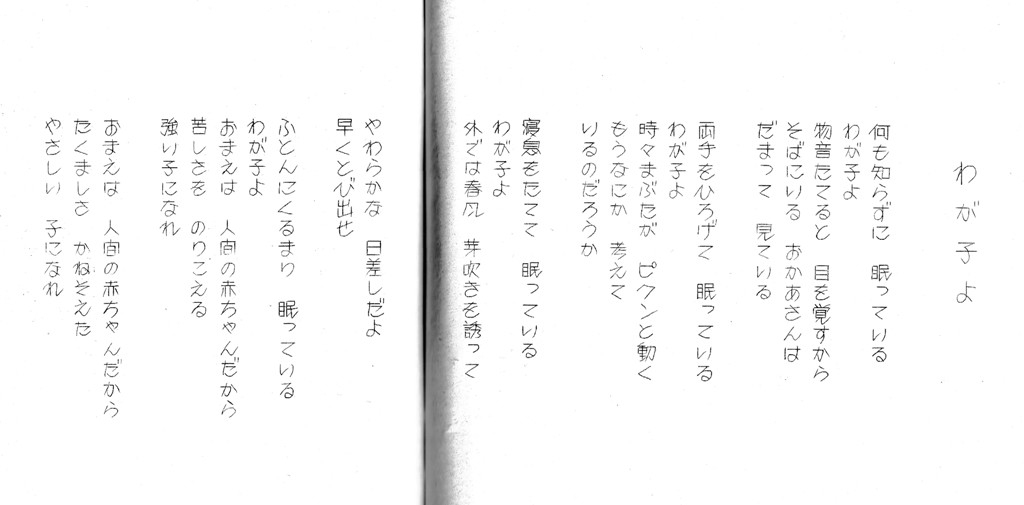 わが子よ
何も知らずに　眠っている
わが子よ
物音たてると　目を覚すから
そばにいる　おかあさんは
だまって　見ている
両手をひろげて　眠っている
わが子よ
時々まぶたが　ピクンと動く
もうなにか　考えて
いるのだろうか
寝息をたてて　眠っている
わが子よ
外では春風　芽吹きを誘って
やわらかな　日差しだよ
早くとび出せ
ふとんにくるまり　眠っている
わが子よ
おまえは　人間の赤ちゃんだから
苦しさを　のりこえる
強い子になれ
おまえは　人間の赤ちゃんだから
たくましさ　かねそえた
やさしい　子になれ